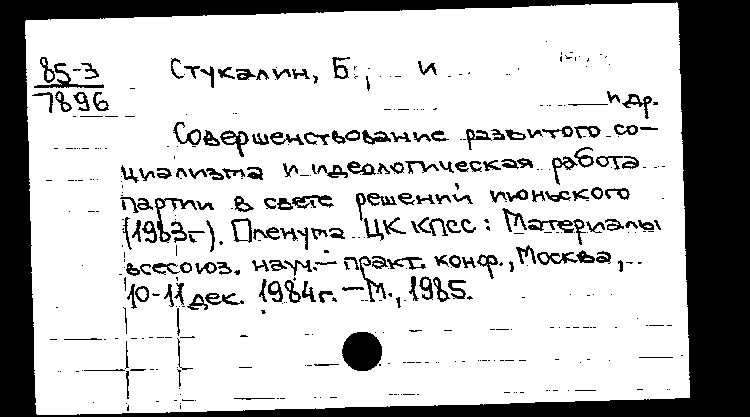 85-3
7896
Стукалин, Б., и
и др.
Совершенствование развитого со-
циализма и идеологическая работа
партии в свете решений июньского
(1983г.). Пленума ЦК КПСС: Материалы
всесоюз. науч.-практ. конф., Москва,
10-11 дек. 1984г. - М., 1985.